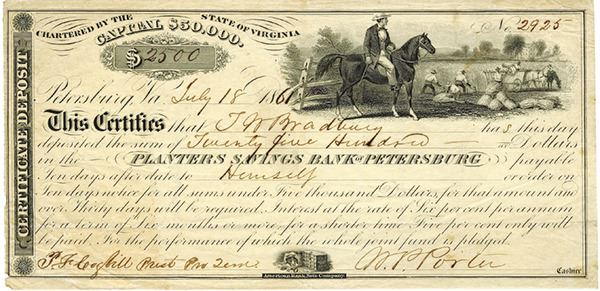 CHARTERED BY THE STATE OF VIRGINIA
CAPITAL $50,000.
No. 2925
$2500
CERTIFICATE DEPOSIT
Petersburg, Va. July 18 1861
This Certifies that T W Bradbury has this day
deposited the sum of Twenty five Hundred — Dollars
in the PLANTERS SAVINGS BANK OF PETERSBURG payable
Ten days after date to Himself or order on
Ten days notice for all sums under Five thousand Dollars, for that amount and
over Thirty days will be required. Interest at the rate of Six per cent per annum
for a term of Six months or more, for a shorter time Five per cent only will
be paid. For the performance of which the whole joint fund is pledged.
Prest Pro Tem
W. P. Porter
Cashier
American Bank Note Company.